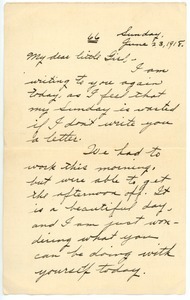 66
Sunday.
June 23, 1918.
My dear little Girl,-
I am
writing to you again
today, as I feel that
my Sunday is wasted
if I don't write you
a letter.
We had to
work this morning,
but were able to get
the afternoon off. It
is a beautiful day
and I am just won-
dering what you
can be doing with
yourself today.